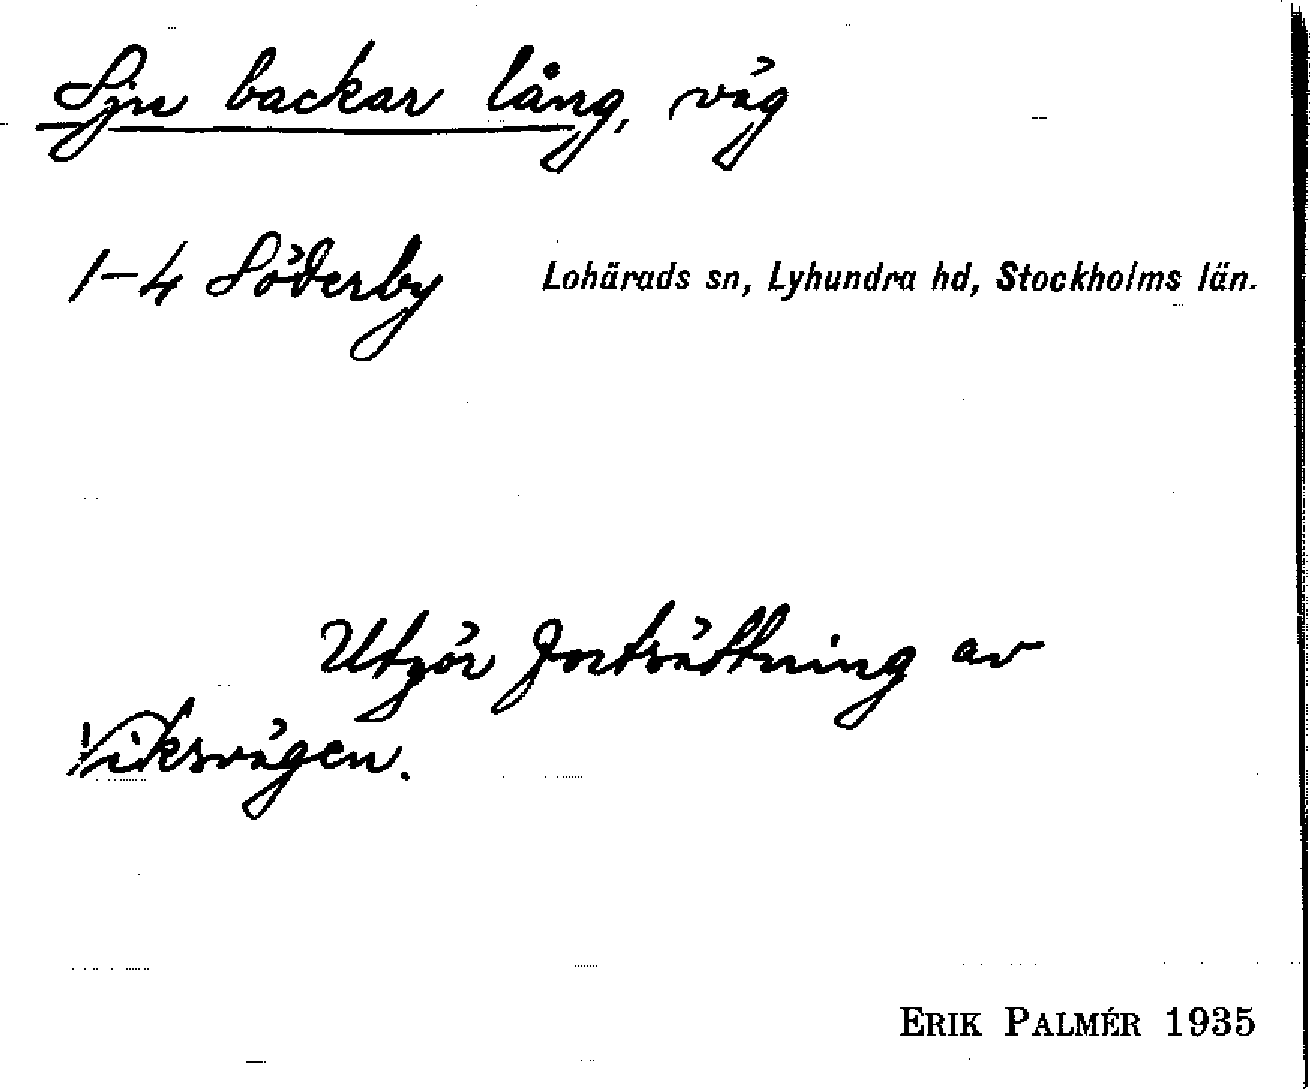 Sju backar lång, väg
1-4 Söderby Lohärads sn, Lyhundra hd, Stockholms län.
Utgör fortsättning av
Viksvägen.
ERIK PALMÉR 1935